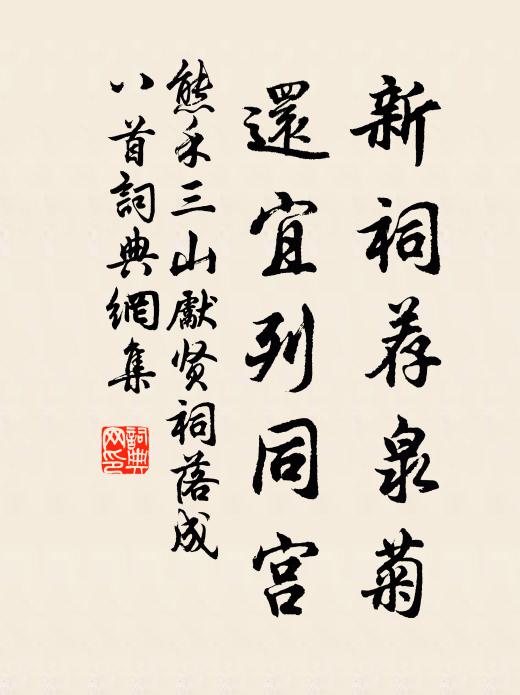 新祠荐泉菊
還宜列同宫
熊禾三山獻贤祠落成
八首詞典網集
詞典
网印